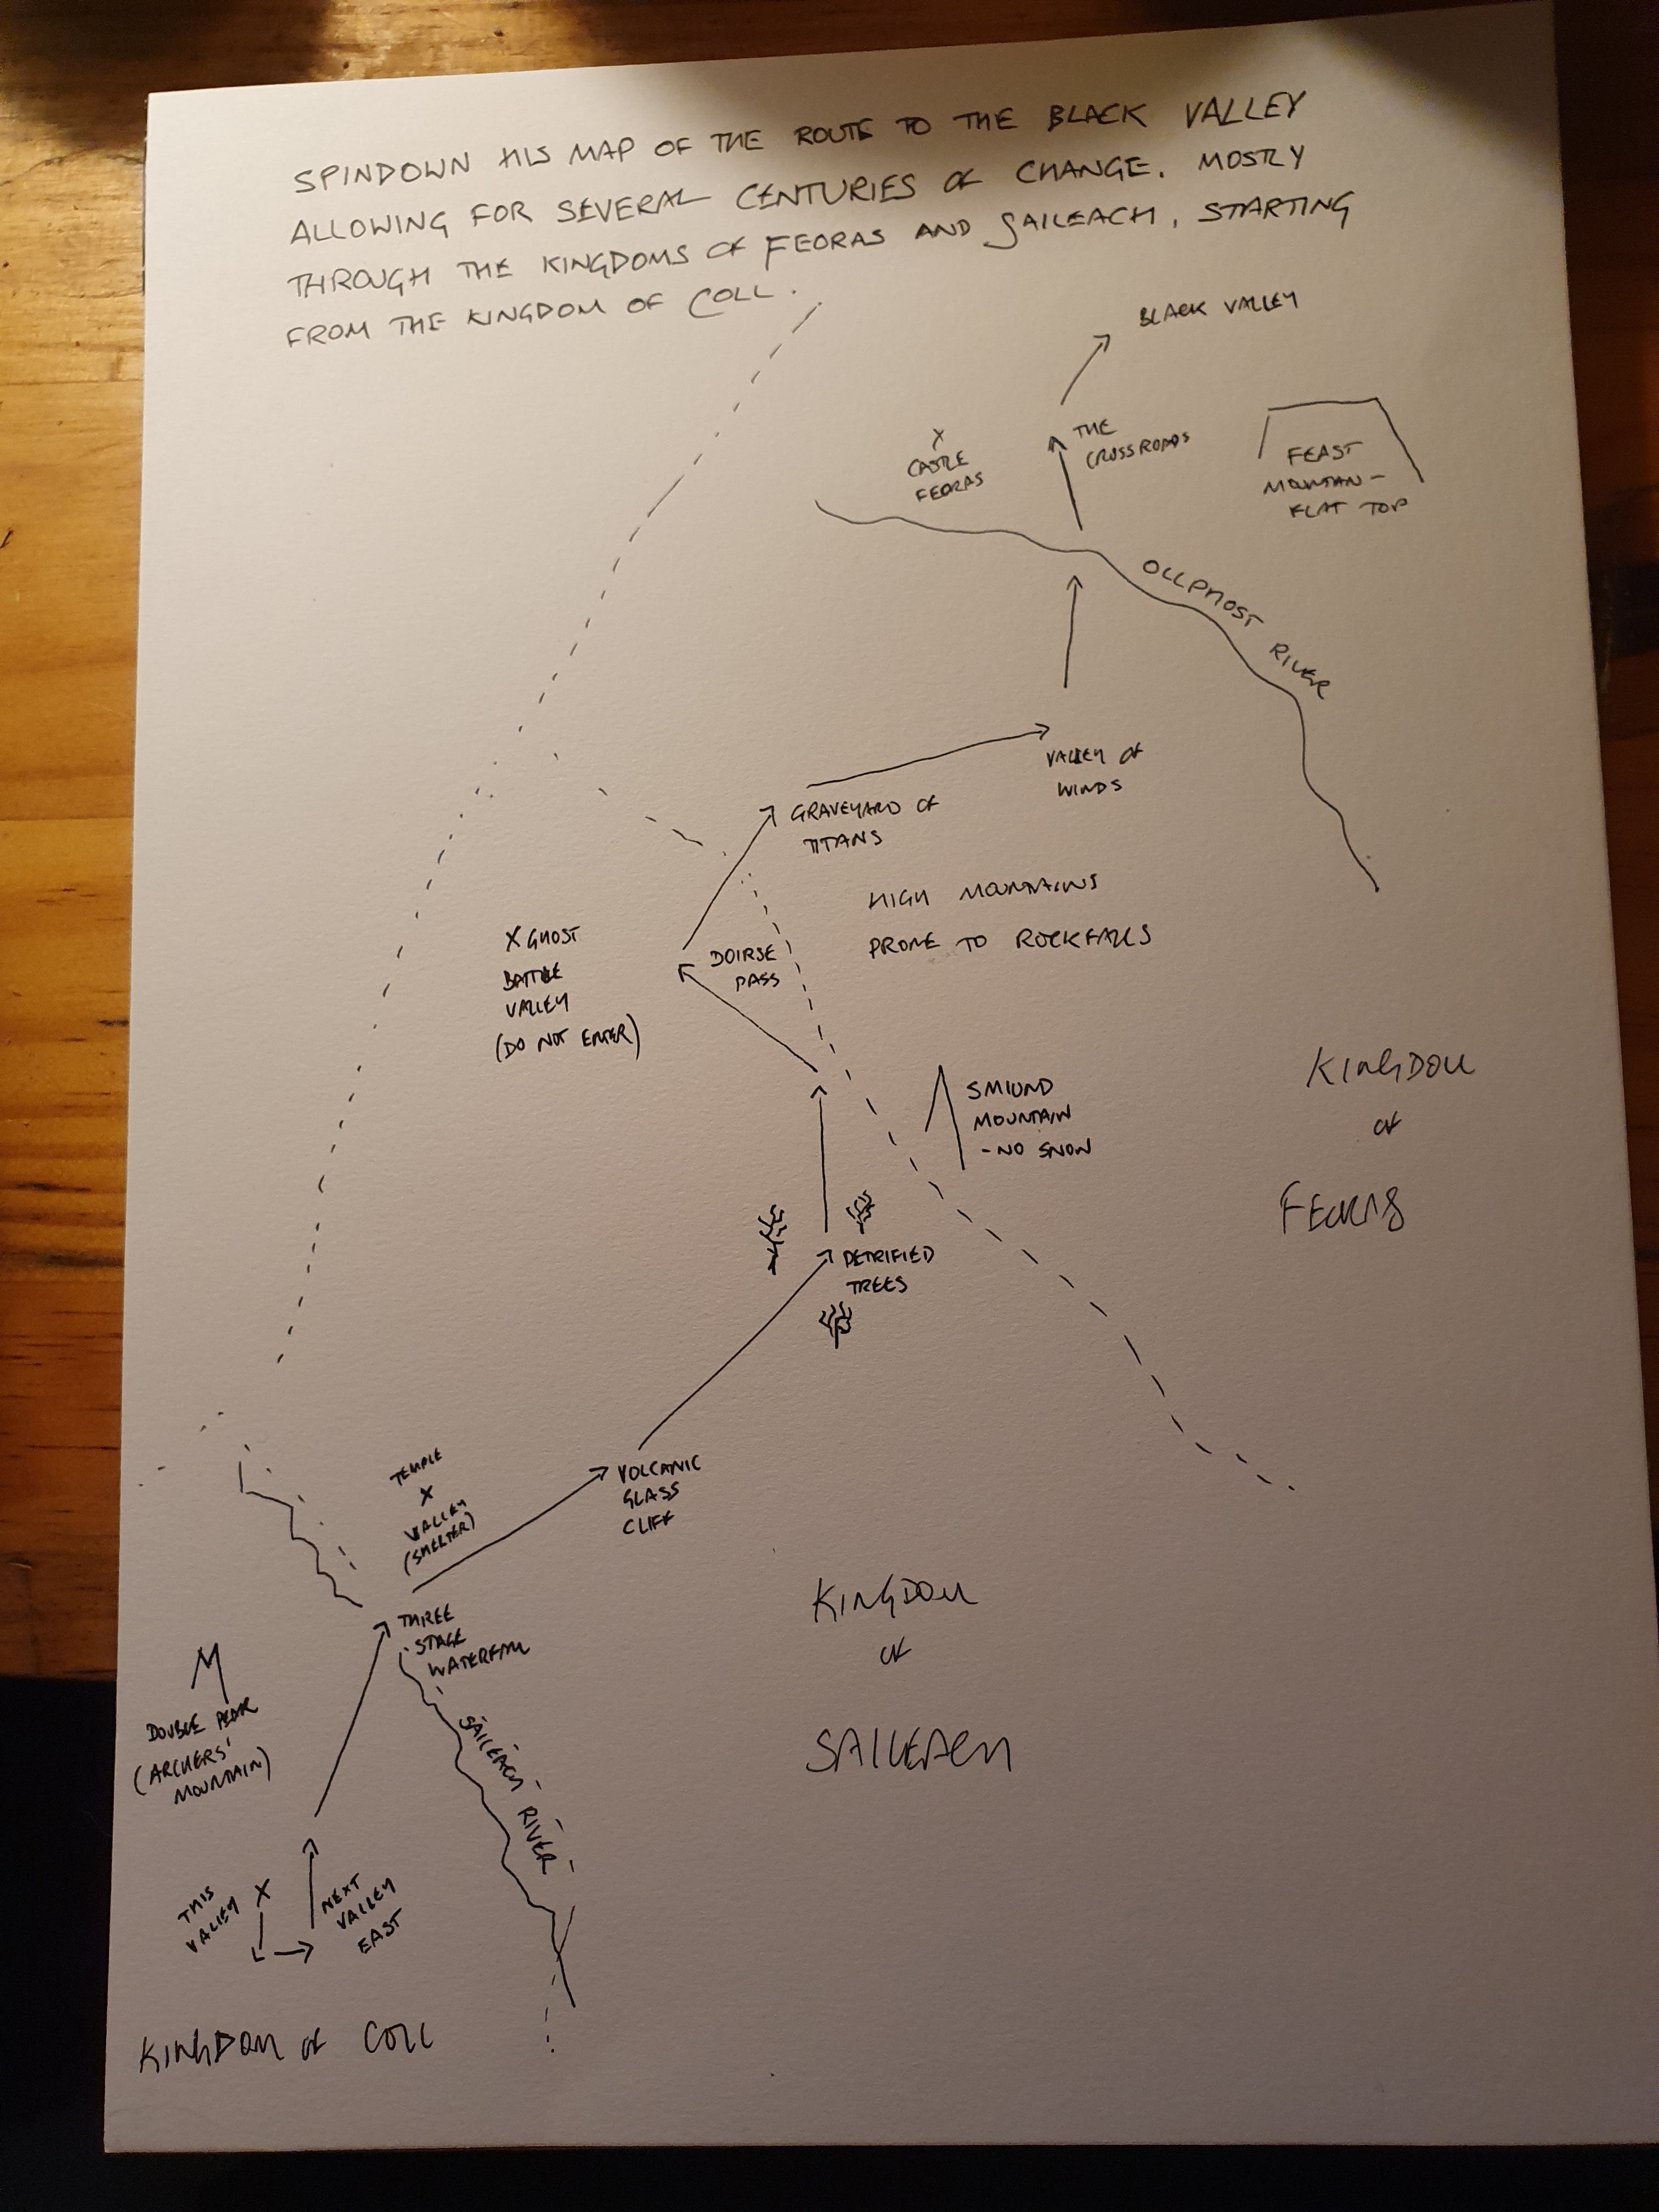 SPINDOWN HIS MAP OF THE ROUTE TO THE BLACK VALLEY
ALLOWING FOR SEVERAL CENTURIES OF CHANGE. MOSTLY
THROUGH THE KINGDOMS OF FEORAS AND SAILEACH, STARTING
FROM THE KINGDOM OF COLL.
BLACK VALLEY
X
CASTLE
FEORAS
THE
CROSSROADS
FEAST
MOUNTAIN -
FLAT TOP
OLLPHOST RIVER
VALLEY OF
WINDS
GRAVEYARD OF
TITANS
HIGH MOUNTAINS
PRONE TO ROCKFALLS
X GHOST
BATTLE
VALLEY
(DO NOT ENTER)
DOIRSE
PASS
SMIUND
MOUNTAIN
- NO SNOW
KINGDOM
OF
FEORAS
PETRIFIED
TREES
TEMPLE
X
VALLEY
(SMELTER)
VOLCANIC
GLASS
CLIFF
KINGDOM
OF
SAILEACH
THREE
STAGE
WATERFALL
DOUBLE PEAK
(ARCHERS'
MOUNTAIN)
SAILEACH RIVER
THIS
VALLEY X
NEXT
VALLEY
EAST
KINGDOM OF COLL